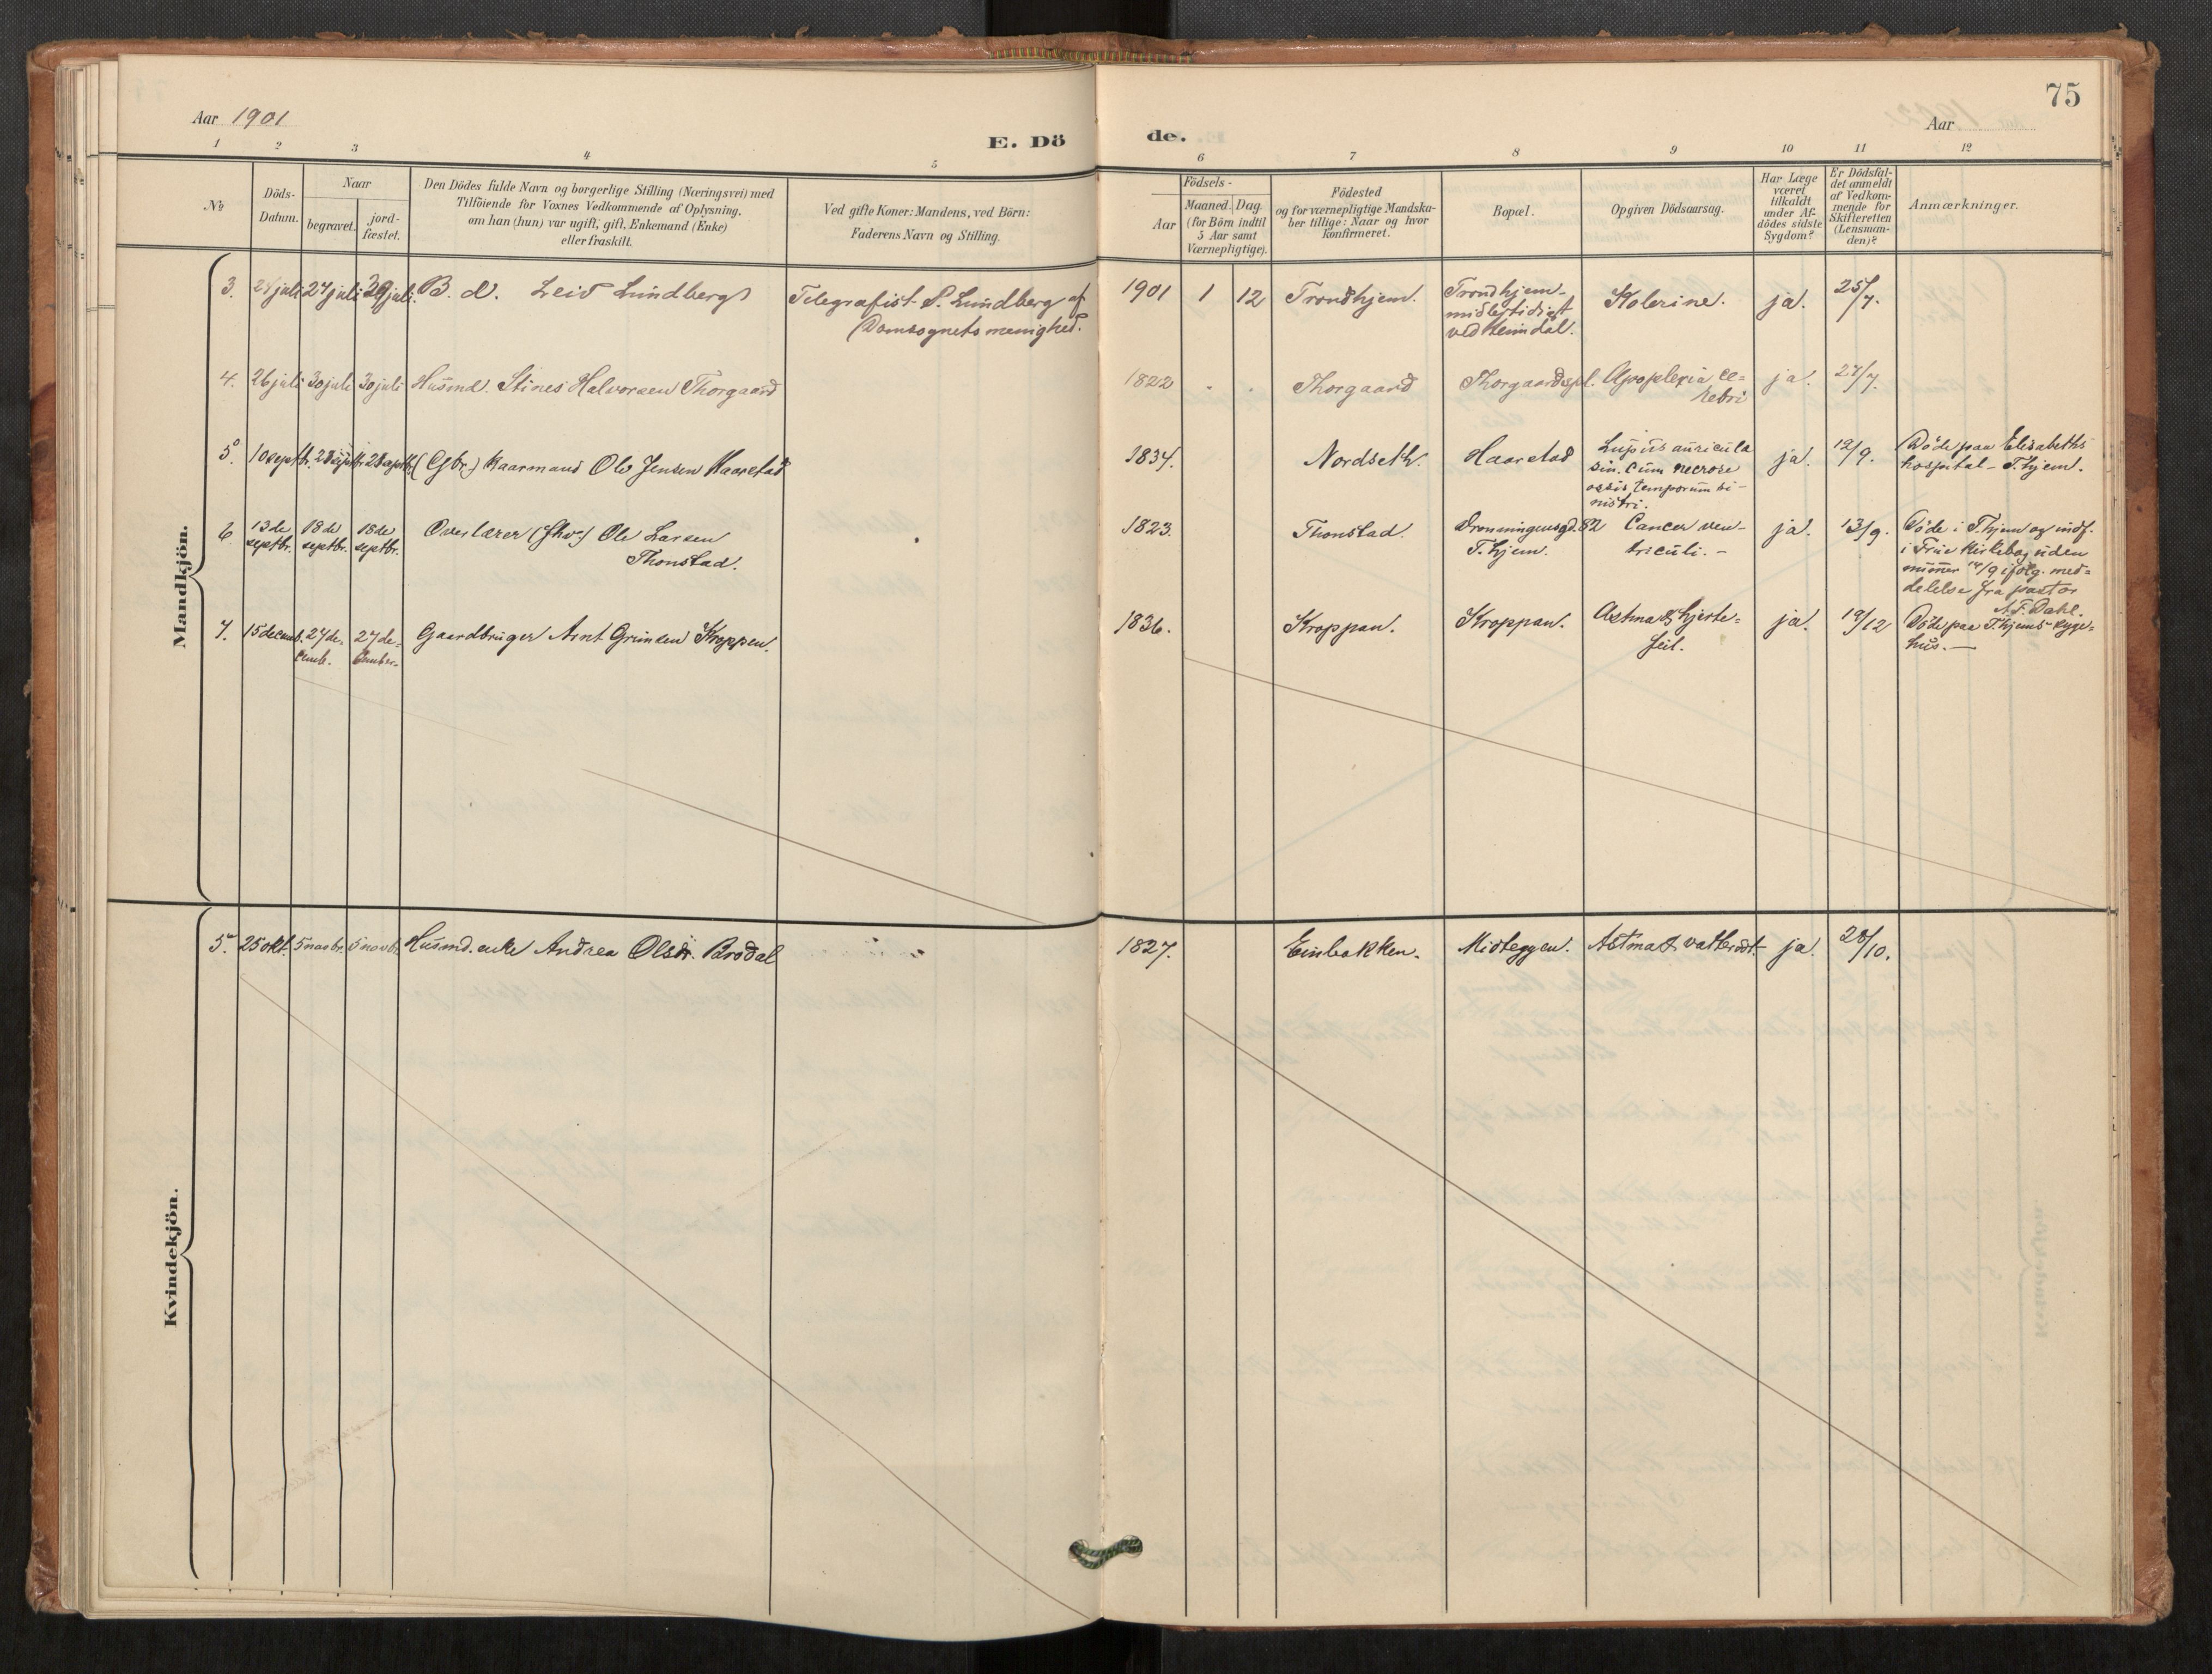 75
Aar 1901
Aar
E. Dö
de.
1 2 3 4 5 6 7 8 9 10 11 12
№
Döds-
Datum.
Naar
begravet.
jord-
fæstet.
Den Dödes fulde Navn og borgerlige Stilling (Næringsvei) med
Tilföiende for Voxnes Vedkommende af Oplysning.
om han (hun) var ugift, gift, Enkemand (Enke)
eller fraskilt.
Ved gifte Koner: Mandens, ved Börn:
Faderens Navn og Stilling.
Födsels-
Aar
Maaned. Dag.
(for Börn indtil
5 Aar samt
Værnepligtige).
Födested
og for værnepligtige Mandska-
ber tillige: Naar og hvor
konfirmeret.
Bopæl.
Opgiven Dödsaarsag.
Har Læge
været
tilkaldt
under Af-
dödes sidste
Sygdom?
Er Dödsfal-
det anmeldt
af Vedkom-
mende for
Skifteretten
(Lensman-
den)?
Anmærkninger.
Mandkjön.
3. juli 27 juli 29 juli. B. d. Leid Lundberg Telegrafist S. Lundberg af
Domsognets menighed.
1901 1 12 Trondhjem. Trondhjem-
midlertidigt
ved Heimdal.
Kolerine. ja. 25/7.
4. 26 juli 30 juli 30 juli Husmd. Stines Halvorsen Thorgaard
1822 Thorgaard Thorgaardspl. Apoplexia ce-
rebri
ja. 27/7.
5. 10 septbr. 28 septbr. 28 septbr. (Gbr.) Kaarmand Ole Jensen Haarstad
1834. Nordseth. Haarstad Lupus auricula
sin. cum necrose
ossis temporum si-
nistri.
ja. 12/9. Döde paa Elisabeths
hospital - T.hjem.
6. 13de
septbr.
18de
septbr.
18de
septbr.
Overlærer Ole Larsen
Thonstad.
1823. Thonstad. Dronningensgd. 82
T.hjem.
Cancer ven-
triculi. -
ja. 13/9. Döde i T.hjem og indf.
i Frue Kirkebog uden
numer 14/9 ifölg. med-
delelse fra pastor
A.F. Dahl.
7. 15 decemb. 27 de-
cemb.
27 de-
cember.
Gaardbruger Arnt Grimsen Kroppen.
1836. Kroppan. Kroppan. Astma & hjerte-
feil.
ja. 19/12 Döde paa T.hjems syge-
hus. —
Kvindekjön.
5. 25 okt. 5 novbr. 5 novbr. Husmd. enke Andrea Olsdr. Brodal
1827. Einbakken. Midteggen. Astma & vattersot. ja. 28/10.